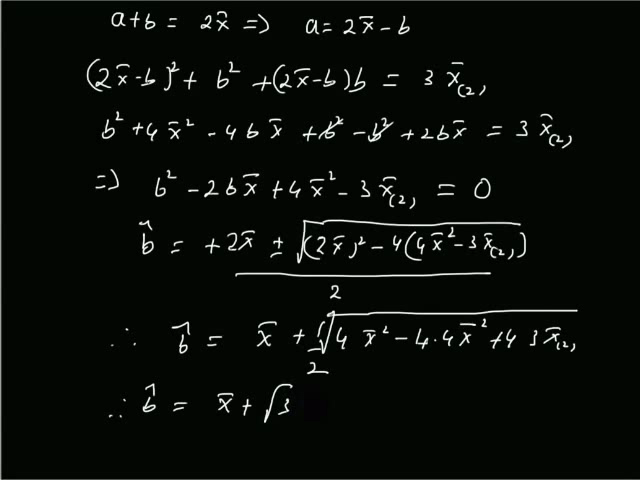 a+b = 2x̄ => a = 2x̄ - b
(2x̄-b)² + b² + (2x̄-b)b = 3 x̄₍₂₎
b² + 4x̄² - 4bx̄ + b² - b² + 2bx̄ = 3 x̄₍₂₎
=> b² - 2bx̄ + 4x̄² - 3x̄₍₂₎ = 0
b̂ = +2x̄ ± √((2x̄)² - 4(4x̄² - 3x̄₍₂₎))
2
∴ b̂ = x̄ + 1/2 √(4 x̄² - 4·4x̄² + 4 3x̄₍₂₎
∴ b̂ = x̄ + √3